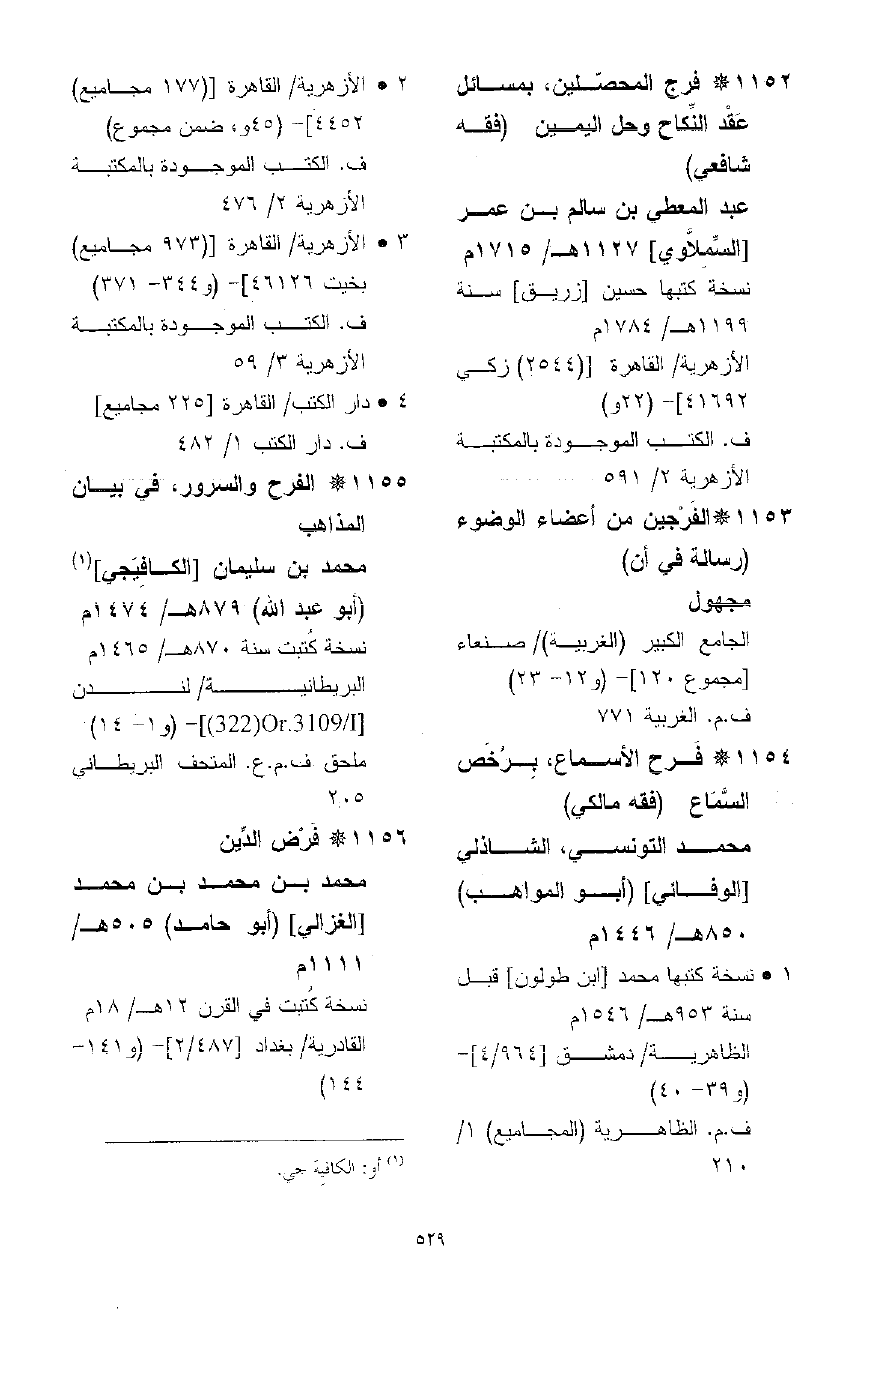 ١١٥٢* فرج المحصّلين، بمسائل
عَقْد النِّكاح وحل اليمين (فقه
شافعي)
عبد المعطي بن سالم بن عمر
[السِّملاَّوي] ١١٢٧هـ/ ١٧١٥م
نسخة كتبها حسين [زريق] سنة
١١٩٩هـ/ ١٧٨٤م
الأزهرية/ القاهرة [(٢٥٤٤) زكي
٤١٦٩٢]- (٢٢و)
ف. الكتب الموجودة بالمكتبة
الأزهرية ٢/ ٥٩١
١١٥٣*الفَرْجين من أعضاء الوضوء
(رسالة في أن)
مجهول
الجامع الكبير (الغربية)/ صنعاء
[مجموع ١٢٠]- (و١٢- ٢٣)
ف.م. الغربية ٧٧١
١١٥٤* فَرح الأسماع، بِرُخَص
السَّمَاع (فقه مالكي)
محمد التونسي، الشاذلي
[الوفائي] (أبو المواهب)
٨٥٠هـ/ ١٤٤٦م
١ • نسخة كتبها محمد [ابن طولون] قبل
سنة ٩٥٣هـ/ ١٥٤٦م
الظاهرية/ دمشق [٤/٩٦٤]-
(و٣٩- ٤٠)
ف.م. الظاهرية (المجاميع) ١/
٢١٠
٢ • الأزهرية/ القاهرة [(١٧٧ مجاميع)
٤٤٥٢]- (٤٥و، ضمن مجموع)
ف. الكتب الموجودة بالمكتبة
الأزهرية ٢/ ٤٧٦
٣ • الأزهرية/ القاهرة [(٩٧٣ مجاميع)
بخيت ٤٦١٢٦]- (و٣٤٤- ٣٧١)
ف. الكتب الموجودة بالمكتبة
الأزهرية ٣/ ٥٩
٤ • دار الكتب/ القاهرة [٢٢٥ مجاميع]
ف. دار الكتب ١/ ٤٨٢
١١٥٥* الفرح والسرور، في بيان
المذاهب
محمد بن سليمان [الكافِيَجي](١)
(أبو عبد الله) ٨٧٩هـ/ ١٤٧٤م
نسخة كُتبت سنة ٨٧٠هـ/ ١٤٦٥م
البريطانية/ لندن
[Or.3109/I(322)]- (و١- ١٤)
ملحق ف.م.ع. المتحف البريطاني
٢٠٥
١١٥٦* فَرْض الدِّين
محمد بن محمد بن محمد
[الغزالي] (أبو حامد) ٥٠٥هـ/
١١١١م
نسخة كُتبت في القرن ١٢هـ/ ١٨م
القادرية/ بغداد [٢/٤٨٧]- (و١٤١-
١٤٤)
(١) أو: الكافِيَة جي.
٥٢٩